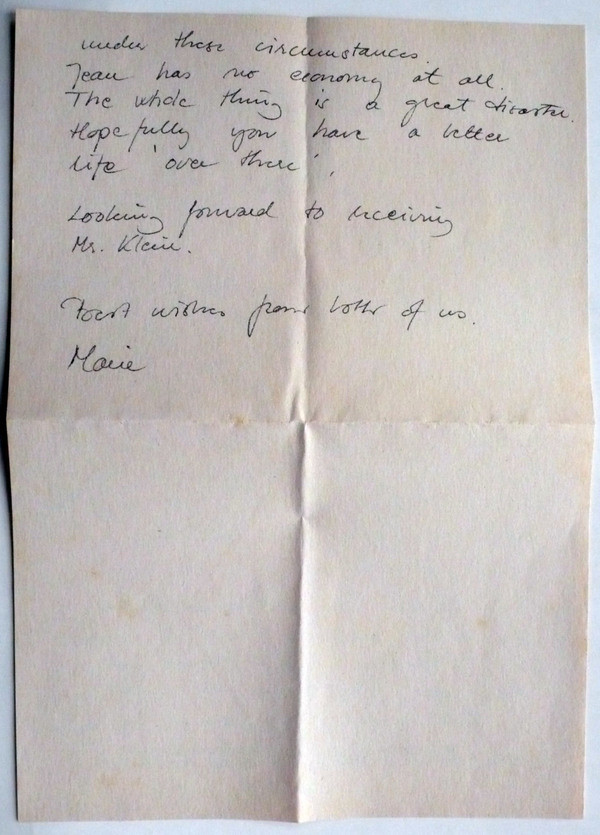 under these circumstances.
Jean has no economy at all.
The whole thing is a great disaster.
Hopefully you have a better
life 'over there',
Looking forward to receiving
Mr. Klein.
Best wishes from both of us.
Marie